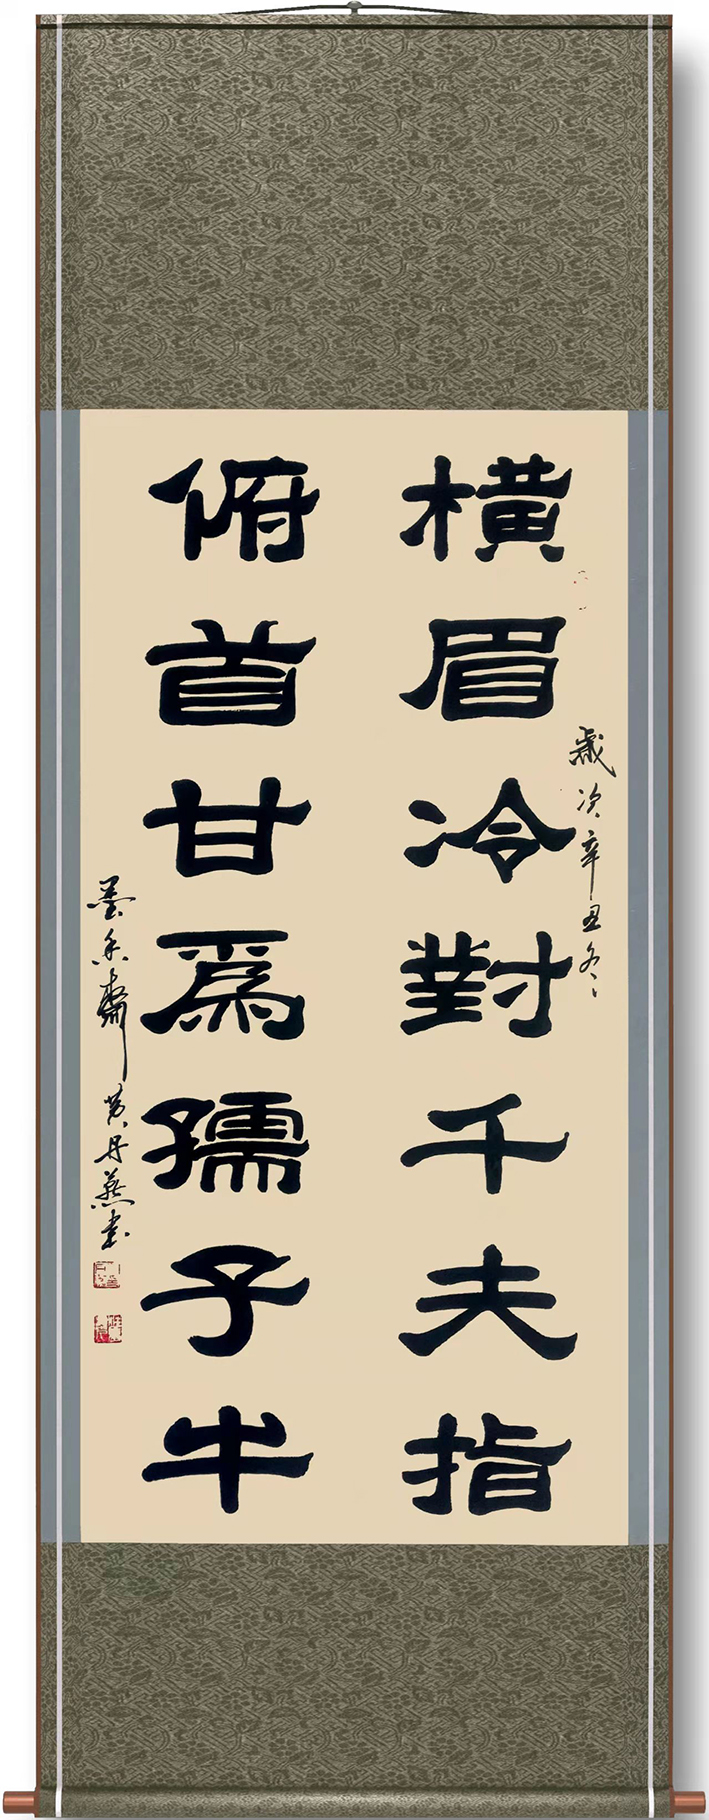 橫眉冷對千夫指
歲次辛丑冬
俯首甘爲孺子牛
墨香齋黃丹燕書